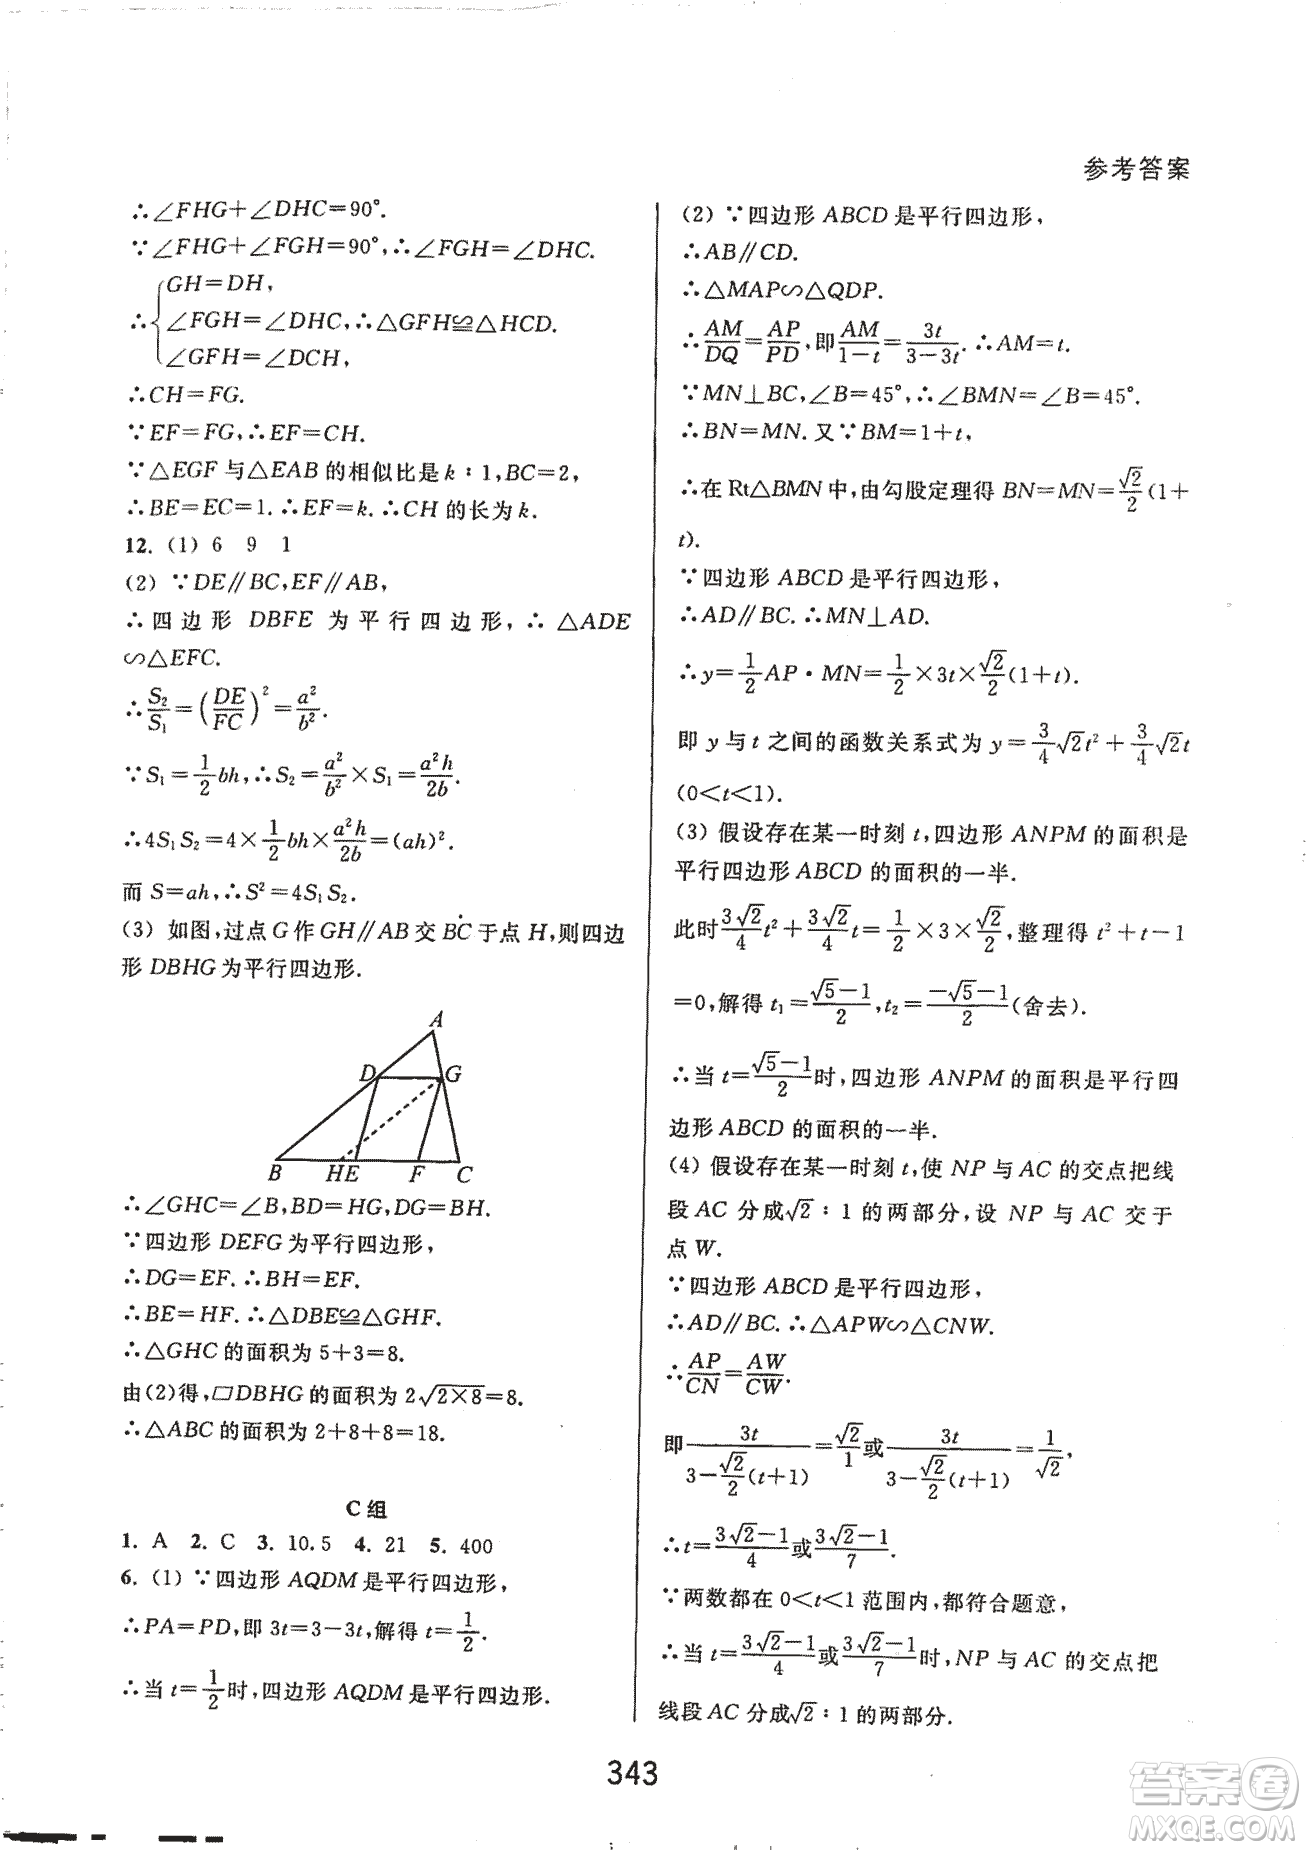 参考答案
∴∠FHG+∠DHC=90°.
∵∠FHG+∠FGH=90°,∴∠FGH=∠DHC.
GH=DH,
∴{∠FGH=∠DHC,∴△GFH≌△HCD.
∠GFH=∠DCH,
∴CH=FG.
∵EF=FG,∴EF=CH.
∵△EGF与△EAB的相似比是k∶1,BC=2,
∴BE=EC=1.∴EF=k.∴CH的长为k.
12.(1) 6 9 1
(2) ∵DE∥BC,EF∥AB,
∴四边形 DBFE 为平行四边形,∴△ADE
∽△EFC.
∴S₂/S₁=(DE/FC)²=a²/b².
∵S₁=1/2bh,∴S₂=a²/b²×S₁=a²h/2b.
∴4S₁S₂=4×1/2bh×a²h/2b=(ah)².
而 S=ah,∴S²=4S₁S₂.
(3) 如图,过点G作GH∥AB交BC于点H,则四边
形DBHG为平行四边形.
A
D G
B H E F C
∴∠GHC=∠B,BD=HG,DG=BH.
∵四边形DEFG为平行四边形,
∴DG=EF.∴BH=EF.
∴BE=HF.∴△DBE≌△GHF.
∴△GHC的面积为5+3=8.
由(2)得,▱DBHG的面积为2√(2×8)=8.
∴△ABC的面积为2+8+8=18.
C组
1. A 2. C 3. 10.5 4. 21 5. 400
6.(1) ∵四边形AQDM是平行四边形,
∴PA=PD,即3t=3-3t,解得t=1/2.
∴当t=1/2时,四边形AQDM是平行四边形.
(2) ∵四边形ABCD是平行四边形,
∴AB∥CD.
∴△MAP∽△QDP.
∴AM/DQ=AP/PD,即AM/(1-t)=3t/(3-3t).∴AM=t.
∵MN⊥BC,∠B=45°,∴∠BMN=∠B=45°.
∴BN=MN.又∵BM=1+t,
∴在Rt△BMN中,由勾股定理得BN=MN=√2/2(1+
t).
∵四边形ABCD是平行四边形,
∴AD∥BC.∴MN⊥AD.
∴y=1/2AP·MN=1/2×3t×√2/2(1+t).
即y与t之间的函数关系式为y=3/4√2t²+3/4√2t
(0<t<1).
(3) 假设存在某一时刻t,四边形ANPM的面积是
平行四边形ABCD的面积的一半.
此时3√2/4t²+3√2/4t=1/2×3×√2/2,整理得t²+t-1
=0,解得t₁=(√5-1)/2,t₂=(-√5-1)/2(舍去).
∴当t=(√5-1)/2时,四边形ANPM的面积是平行四
边形ABCD的面积的一半.
(4) 假设存在某一时刻t,使NP与AC的交点把线
段AC分成√2∶1的两部分,设NP与AC交于
点W.
∵四边形ABCD是平行四边形,
∴AD∥BC.∴△APW∽△CNW.
∴AP/CN=AW/CW.
即3t/(3-√2/2(t+1))=√2/1或3t/(3-√2/2(t+1))=1/√2,
∴t=(3√2-1)/4或(3√2-1)/7.
∵两数都在0<t<1范围内,都符合题意,
∴当t=(3√2-1)/4或(3√2-1)/7时,NP与AC的交点把
线段AC分成√2∶1的两部分.
343
答案卷
MXQE.COM